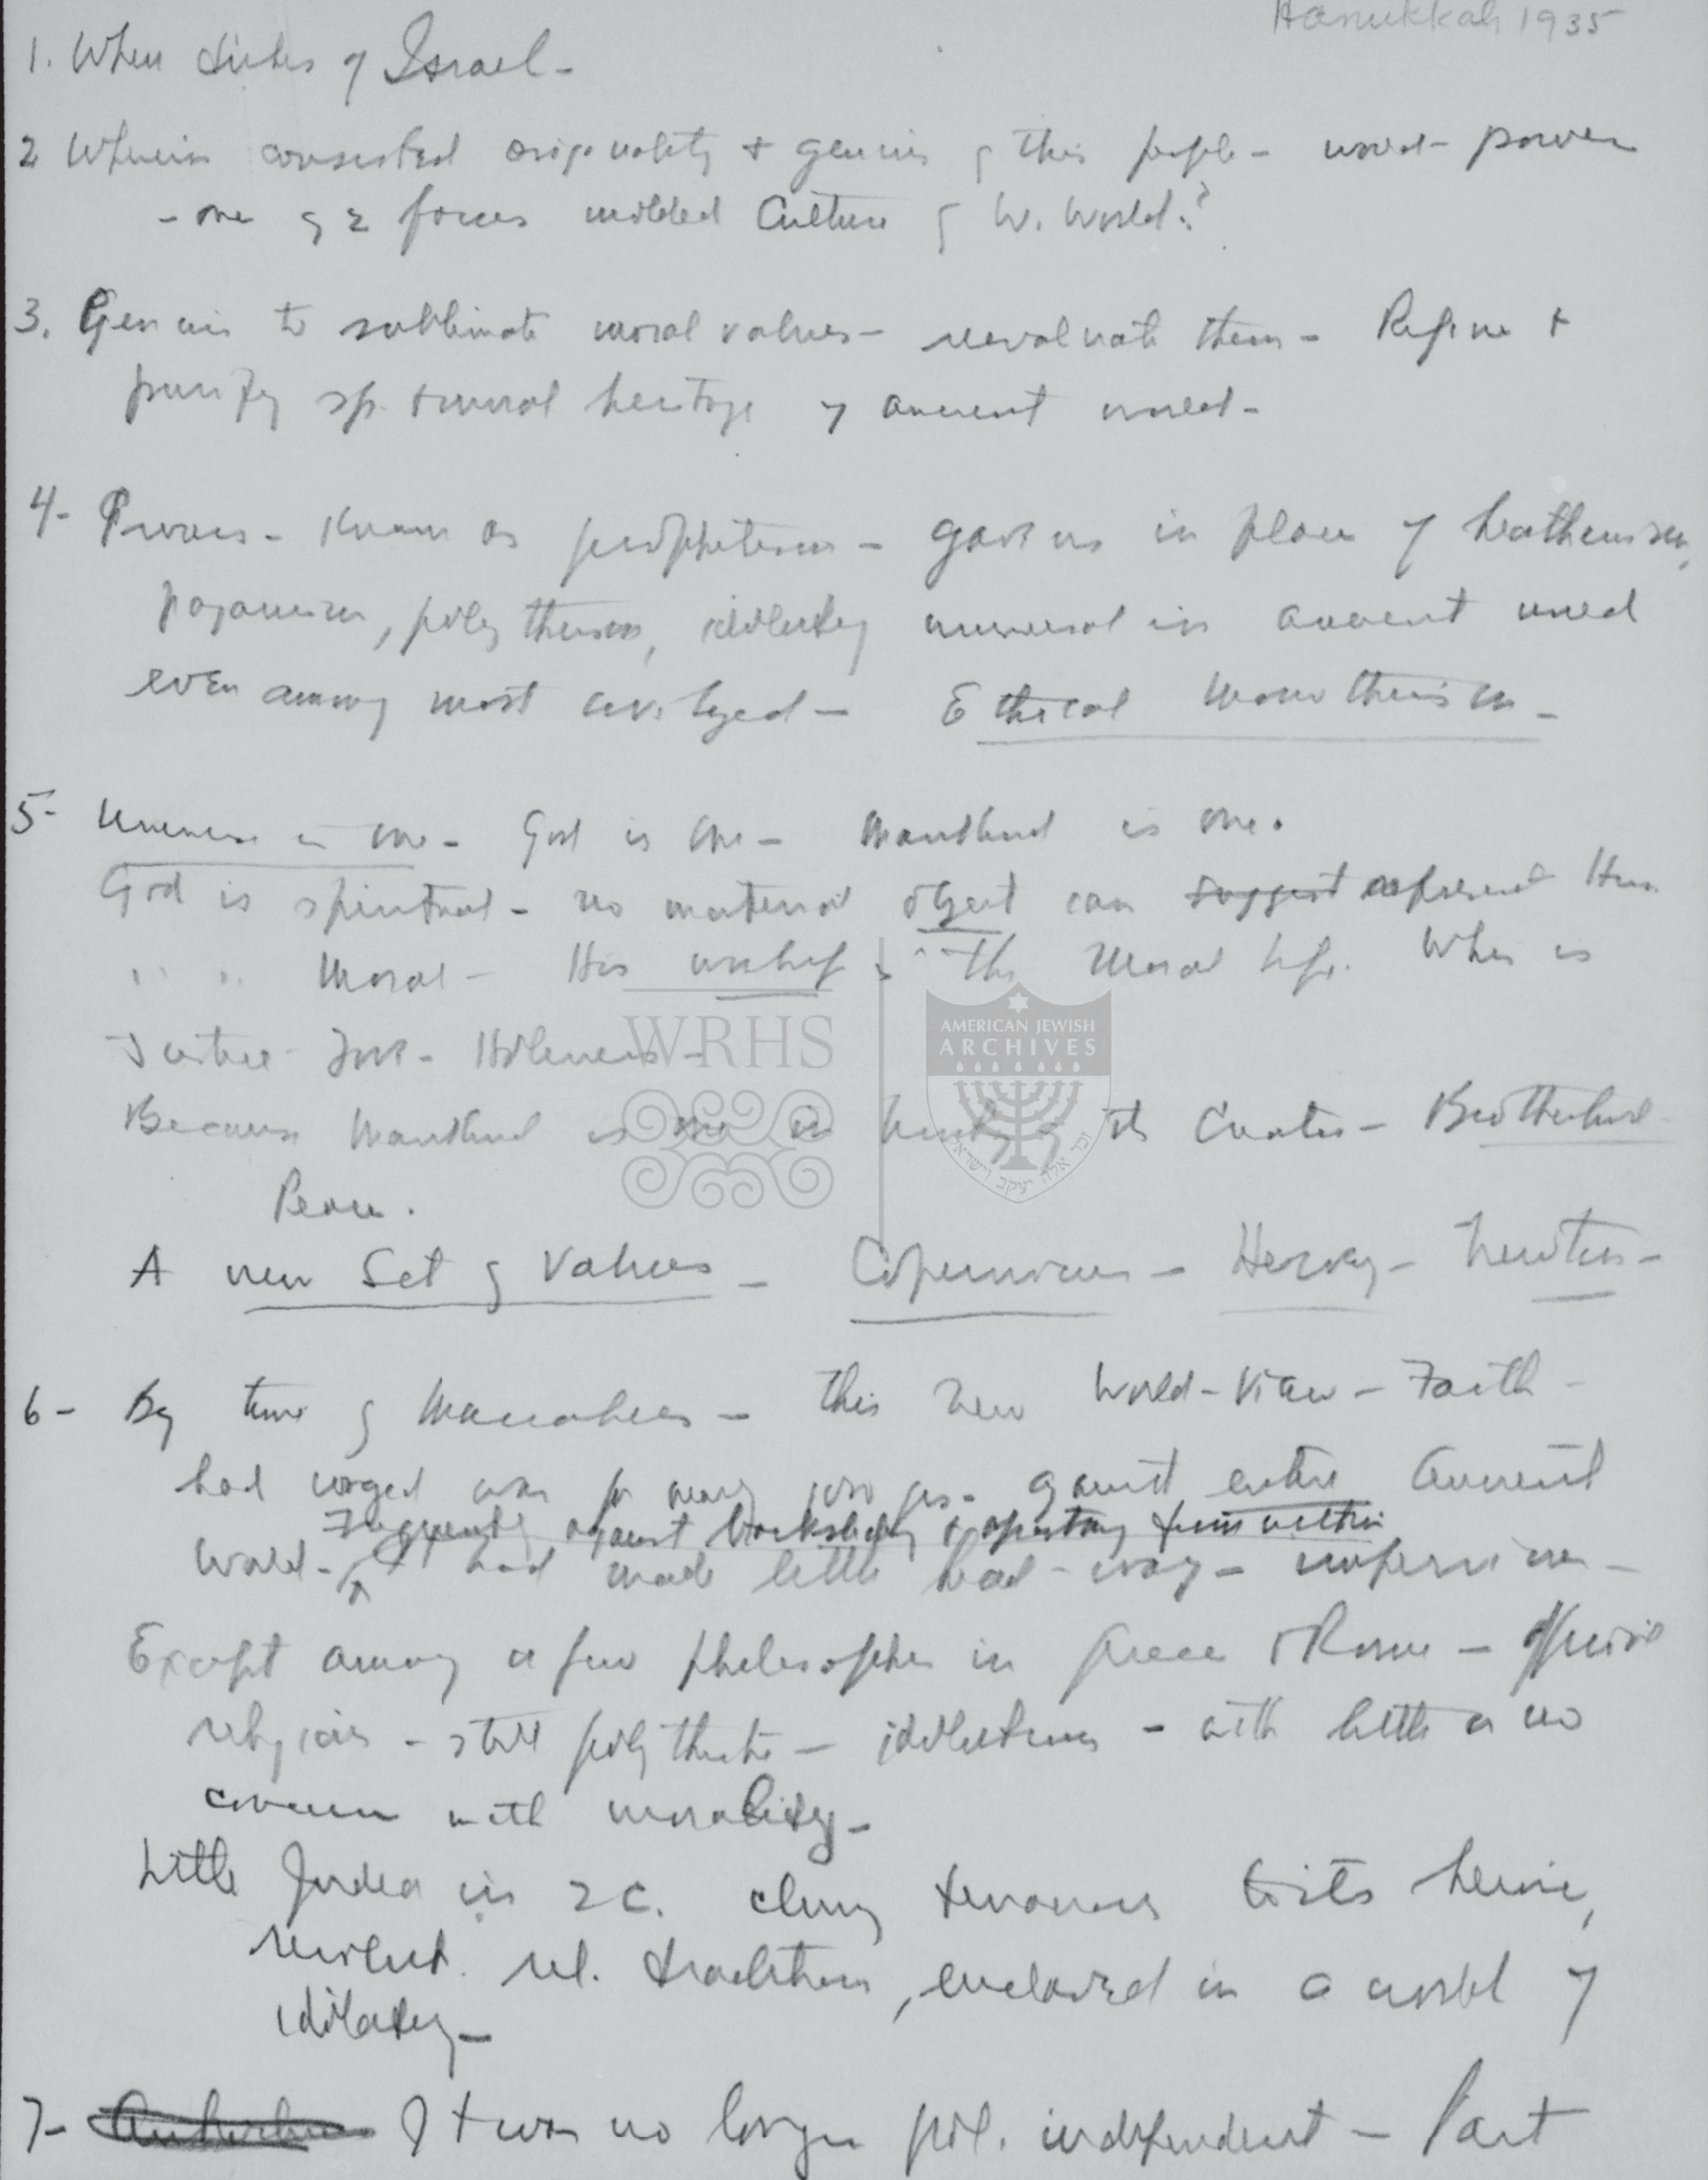 Hanukkah 1935
1. When of Israel -
2 Wherein consisted originality & genius of this people - world - power
- one of 2 forces molded Culture of W. World.?
3. Genius to sublimate moral values - revaluate them - Refine &
purify sp. & moral heritage of ancient world -
4- Process - Known as prophetism - gave us in place of heathenism,
paganism, polytheism, idolatry universal in ancient world
even among most civilized - Ethical Monotheism -
5- Universe is one - God is One - Mankind is one.
God is spiritual - no material object can suggest represent Him
" " Moral - His worship is the Moral life. When is
Justice - Love - Holiness -
WRHS
AMERICAN JEWISH
ARCHIVES
Because Mankind is one in of its Creator - Brotherhood
Peace.
A new Set of Values - Copernicus - Harvey - Newton -
6- By time of Maccabees - this new World-View - Faith -
had waged war for nearly yrs. against entire Ancient
Frequently against backsliding & apostasy from within
World - It had made little head-way -
Except among a few philosophers in Greece & Rome - official
religions - still polytheistic - idolatrous - with little or no
concern with morality -
Little Judea in 2 C. clung tenaciously to its heroic,
rel. tradition, enclosed in a world of
idolatry -
7- It was no longer pol. independent - Part